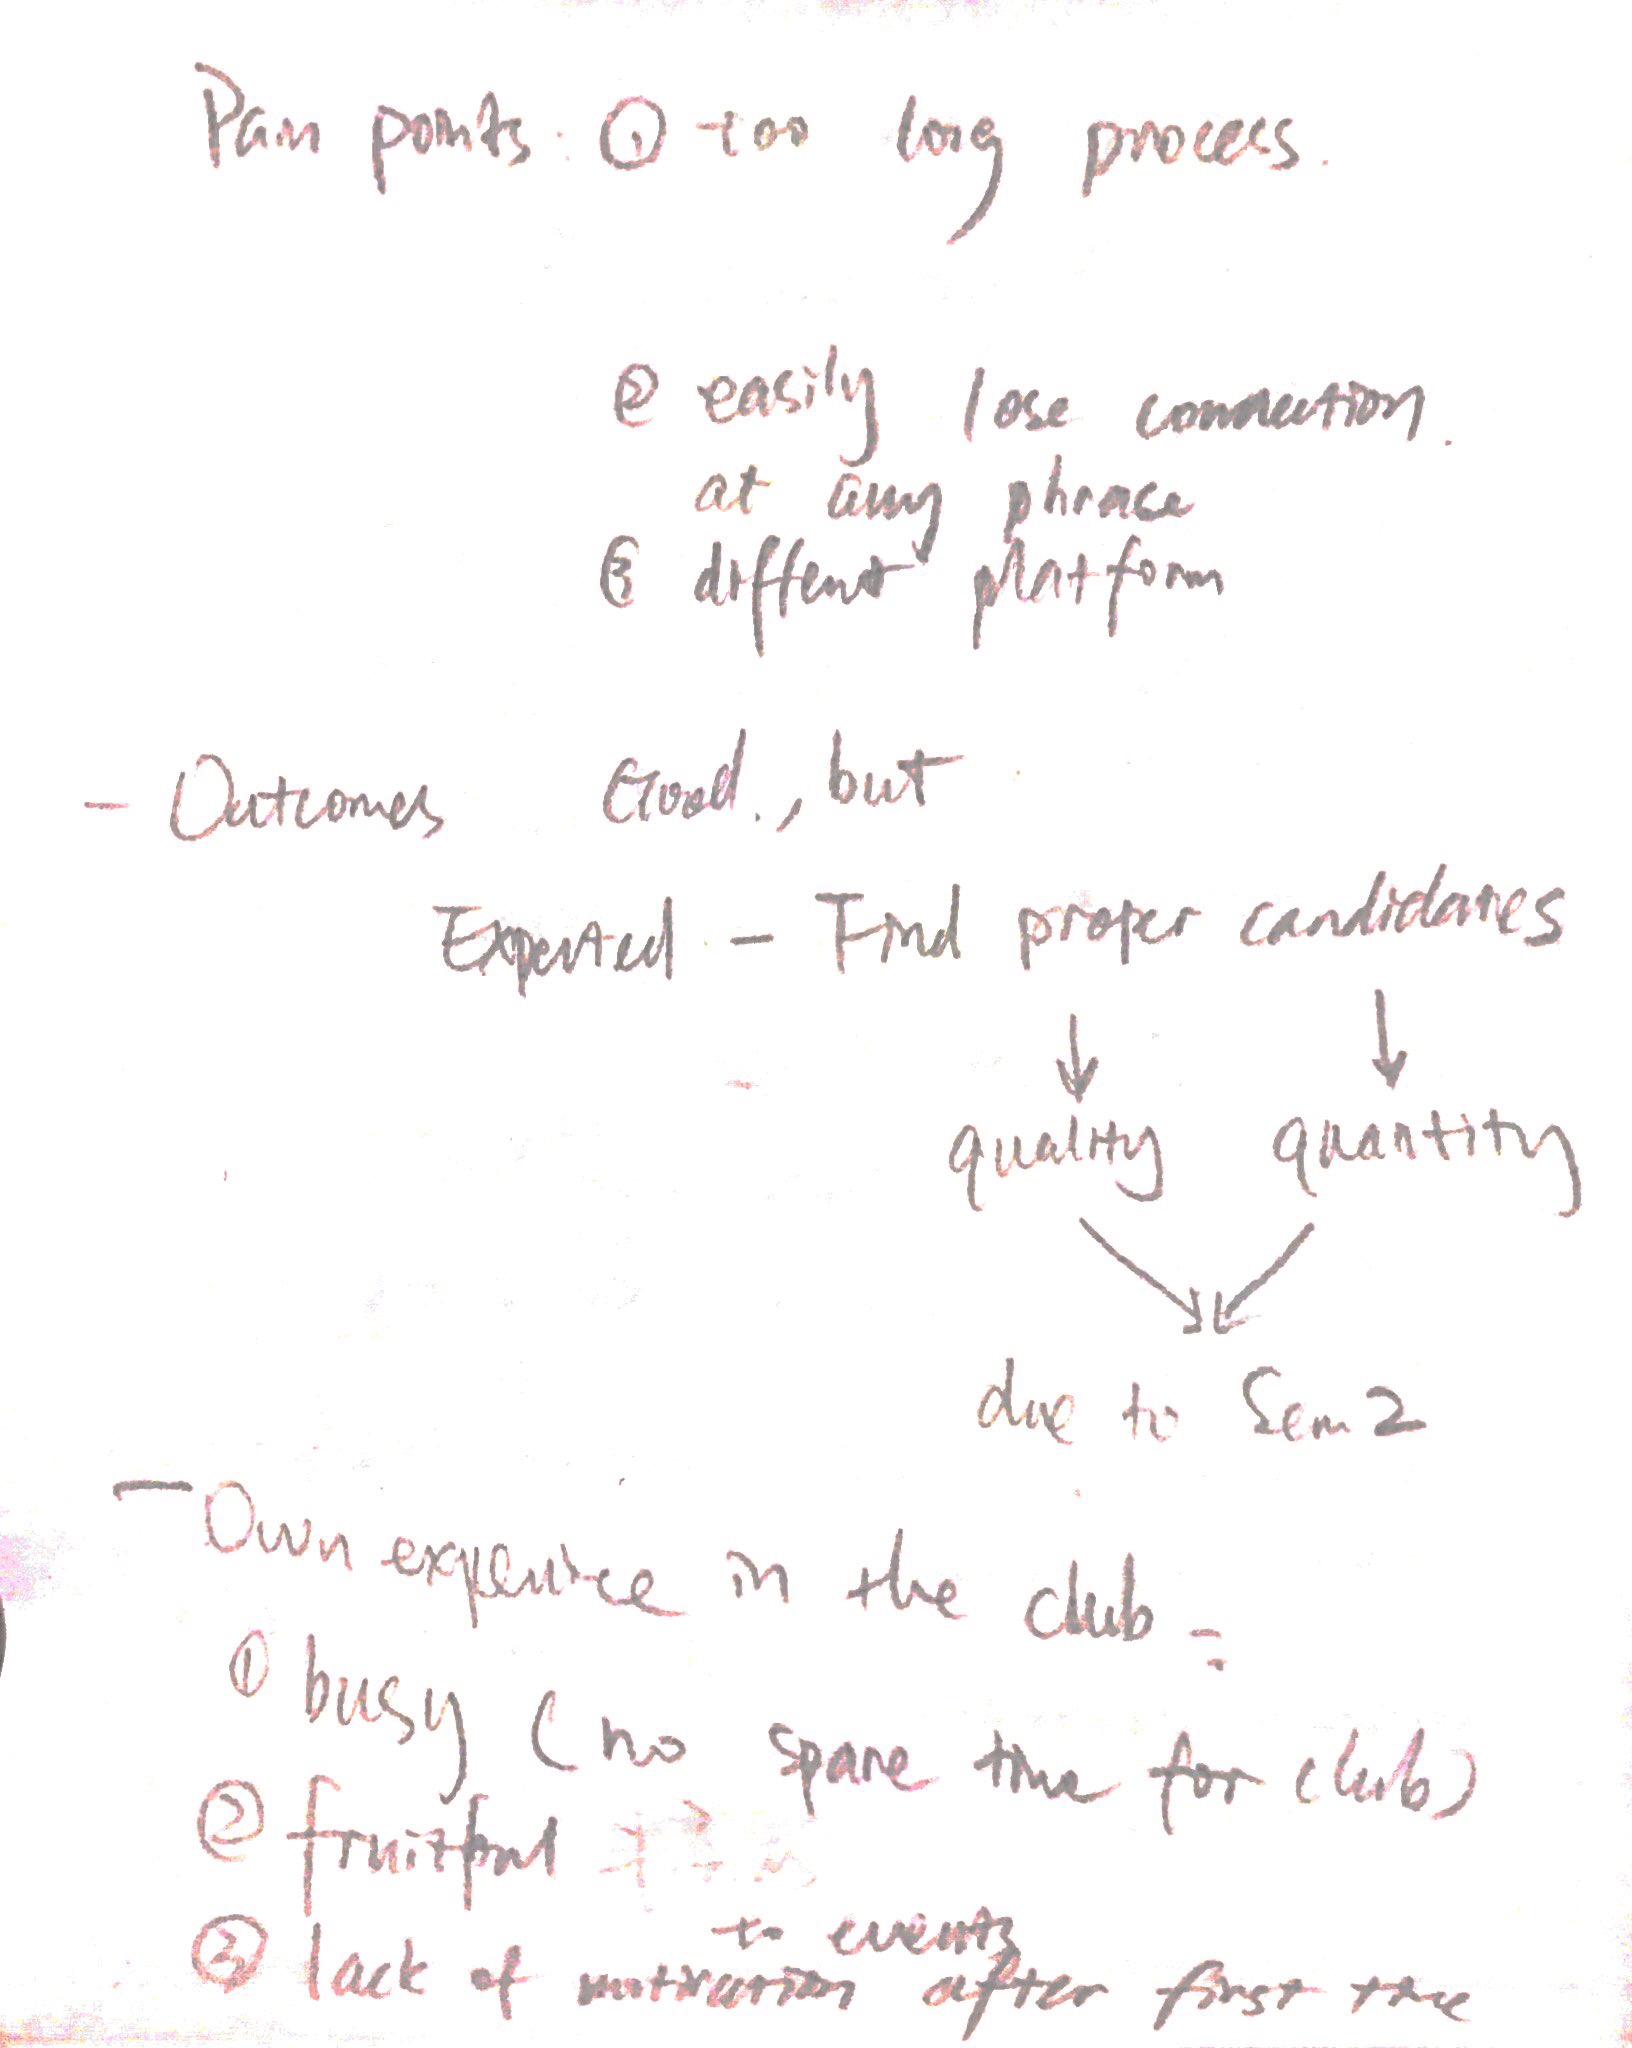 Pain points: ① too long process.
② easily lose connection.
at any phrase
③ different platform
- Outcomes Good., but
Expected - Find proper candidates
↓ ↓
quality quantity
due to Sem 2
- Own experience in the club:
① busy (no spare time for club)
② fruitful
to events
③ lack of motivation after first time